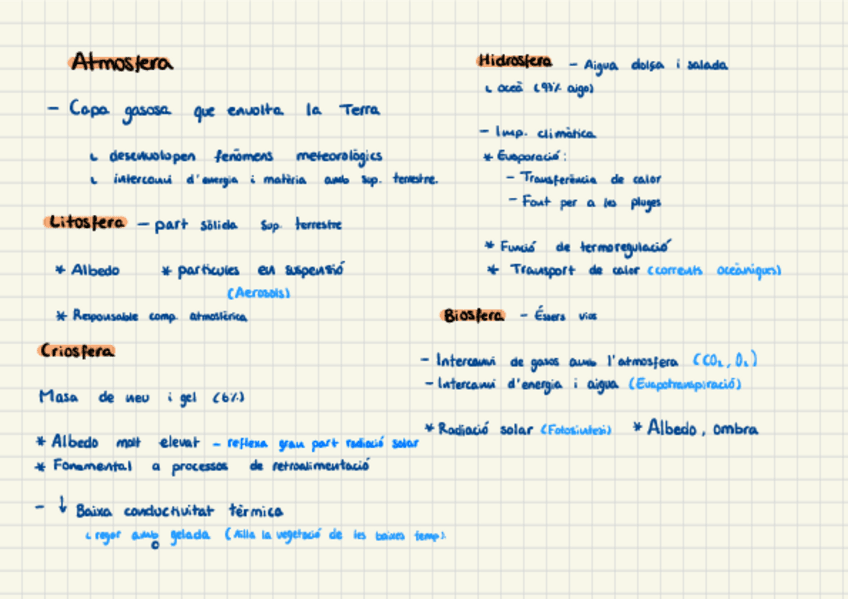 Atmosfera
- Capa gasosa que envolta la Terra
↳ desenvolopen fenòmens meteorològics
↳ intercanvi d'energia i matèria amb sup. terrestre.
Litosfera - part sòlida sup. terrestre
* Albedo * partícules en suspensió
(Aerosols)
* Responsable comp. atmosfèrica
Criosfera
Masa de neu i gel (6%)
* Albedo molt elevat - reflexa gran part radiació solar
* Fonamental a processos de retroalimentació
- ↓ Baixa conductivitat tèrmica
↳ regar amb gelada (Aïlla la vegetació de les baixes temp).
Hidrosfera - Aigua dolça i salada
↳ oceà (97% aigo)
- Imp. climàtica
* Evaporació:
- Transferència de calor
- Font per a les pluges
* Funció de termoregulació
* Transport de calor (corrents oceàniques)
Biosfera - Éssers vius
- Intercanvi de gasos amb l'atmosfera (CO₂, O₂)
- Intercanvi d'energia i aigua (Evapotranspiració)
* Radiació solar (Fotosíntesi) * Albedo, ombra